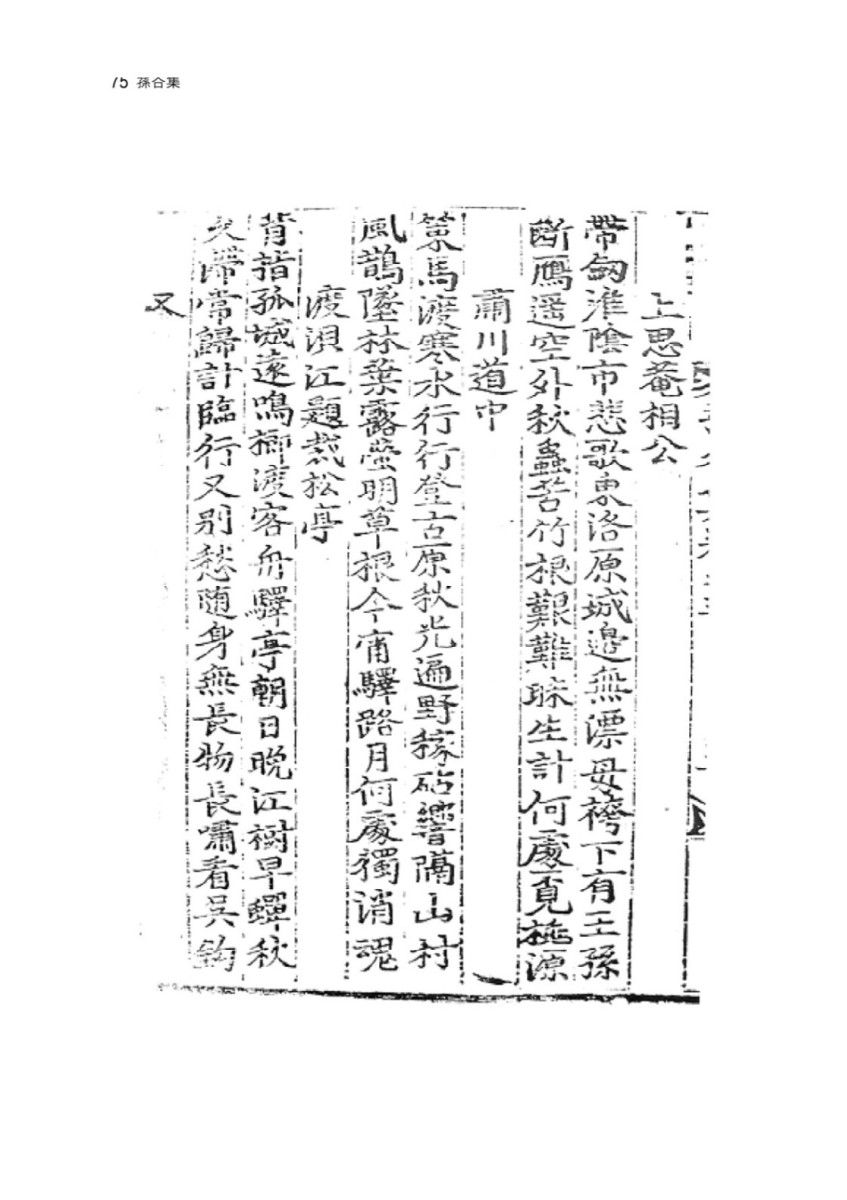 75 孫合集
上思菴相公
帶劔淮陰市悲歌東洛原城邉無漂母袴下有王孫
断鴈遥空外秋蟲苦竹根艱難殊生計何處覓桃源
肅川道中
策馬渡寒水行行登古原秋光遍野稼砧響隔山村
風鵲墜林葉露螢明草根今宵驛路月何處獨消魂
渡浿江題栽松亭
背指孤城遠鳴榔渡客舟驛亭朝日晩江樹早蟬秋
久滯常歸計臨行又别愁随身無長物長嘯看吳鈎
又